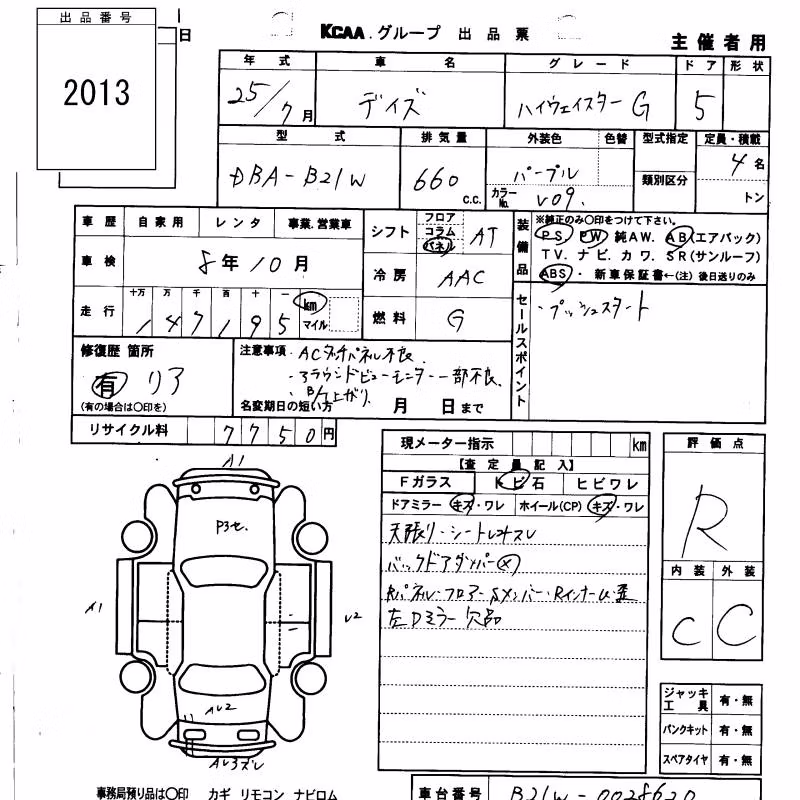 出品番号
2013
日
KCAA.グループ 出品票
主催者用
年式 車名 グレード ドア 形状
25/7月 デイズ ハイウェイスターG 5
型式 排気量 外装色 色替 型式指定 定員・積載
DBA-B21W 660 c.c. パープル 類別区分 4名
カラーNo. V09. トン
車歴 自家用 レンタ 事業.営業車
シフト フロア コラム パネル AT
装備品 ※純正のみ○印をつけて下さい。
PS. PW 純AW. AB(エアバック)
TV. ナビ. カワ. SR(サンルーフ)
ABS・ 新車保証書←(注) 後日送りのみ
車検 8年10月
冷房 AAC
走行 十万 万 千 百 十 一
147195 km マイル
燃料 G
セールスポイント
・プッシュスタート
修復歴 箇所
有 リア
(有の場合は○印を)
注意事項・ACタッチパネル不良.
・アラウンドビューモニター一部不良.
・B/上がり.
名変期日の短い方 月 日まで
リサイクル料 7750円
現メーター指示 km
【査定量記入】
Fガラス トビ石 ヒビワレ
ドアミラー キズ・ワレ ホイール(CP) キズ・ワレ
天張り・シートヨゴスレ
バックドアダンパー×
Rパネル・フロア・Sメンバー・Rインナー歪
左Dミラー欠品
評価点
R
内装 外装
C C
A1
P3セ.
A1
U2
AU2
AU3ズレ
ジャッキ工具 有・無
パンクキット 有・無
スペアタイヤ 有・無
事務局預り品は○印 カギ リモコン ナビロム
車台番号 B21W-0028620